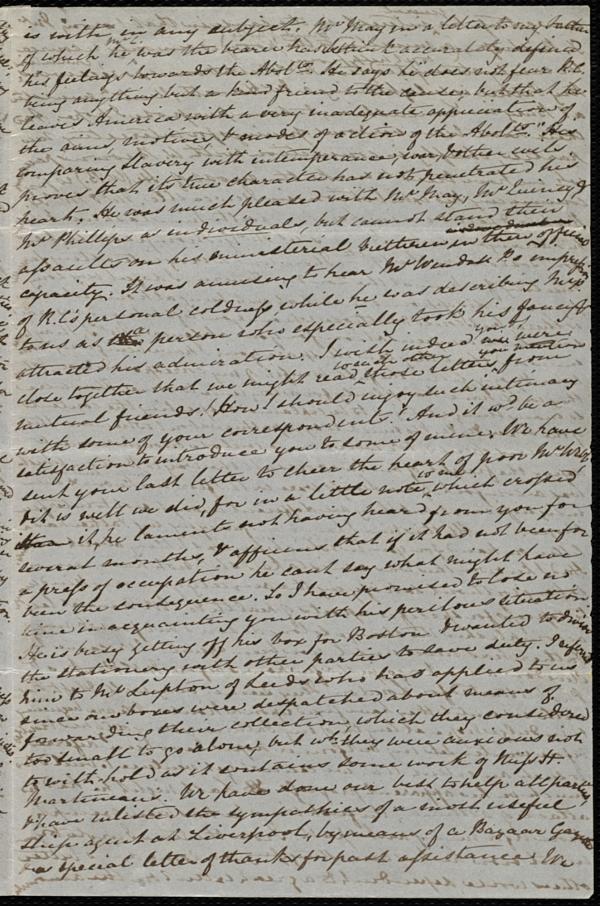 is with, in any subject. Mr May in a letter to my father
of which he was the bearer has I think accurately defined
his feelings towards the Abolts. He says he does not fear R.C.
being anything but a kind friend to the cause, but that he
leaves America with a very inadequate appreciation of
the aims, motives, & modes of action of the Abolts." His
comparing Slavery with intemperance, war, & other evils
proves that its true character has not penetrated his
heart. He was much pleased with Mr May, Mr Quincy, &
Mr Phillips as individuals, but cannot stand their
assaults on his ministerial brethren in their official
capacity. It was amusing to hear Mr Wendell P's impression
of R.C's personal coldness, while he was describing Mr P
to us as a person who especially took his fancy &
attracted his admiration. I wish indeed you & I were
close together that we might read to each other those letters you mention from
mutual friends! How I should enjoy such intimacy
with some of your correspondents! And it wd be a
satisfaction to introduce you to some of mine. We have
sent your last letter to cheer the heart of poor Mr
& it is well we did, for in a little note to us which crossed
it, he laments not having heard from you for
several months, & affirms that if it had not been for
a press of occupation he cant say what might have
been the consequence. So I have promised to lose no
time in acquainting you with his perilous situation.
He is busy getting off his box for Boston & wanted to divide
the stationery with other parties to save duty. I referred
him to Mr Lupton of Leeds who has applied to us
since our boxes were despatched about means of
forwarding their collection, which they considered
too small to go alone, but wh. they were anxious not
to withhold as it contains some work of Miss H.
Martineau's. We have done our best to help all parties
& have enlisted the sympathies of a most useful
ship agent at Liverpool, by means of a Bazaar Gazette
& a special letter of thanks for past assistance. We